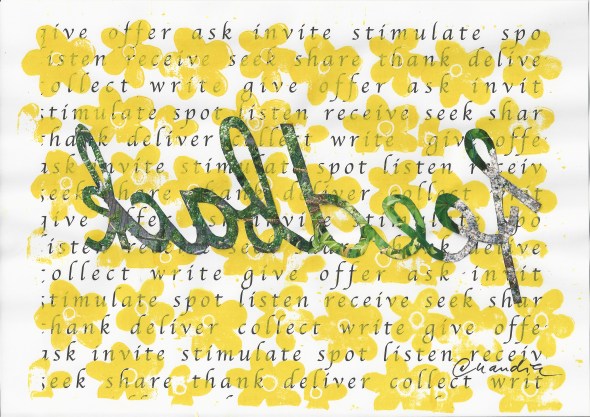 give offer ask invite stimulate spo
listen receive seek share thank delive
collect write give offer ask invit
stimulate spot listen receive seek shar
thank deliver collect write give offe
ask invite stimulate spot listen receiv
seek share thank deliver collect writ
feedback
give offer ask invite stimulate spo
listen receive seek share thank delive
collect write give offer ask invit
stimulate spot listen receive seek shar
thank deliver collect write give offe
ask invite stimulate spot listen receiv
seek share thank deliver collect writ